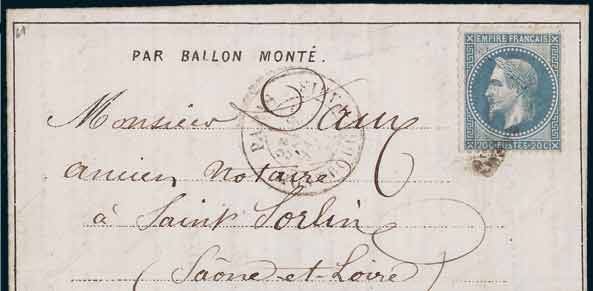 PAR BALLON MONTÉ.
EMPIRE FRANÇAIS
20C POSTES 20C
Monsieur
ancien notaire
à Saint Sorlin
(Saône-et-Loire)